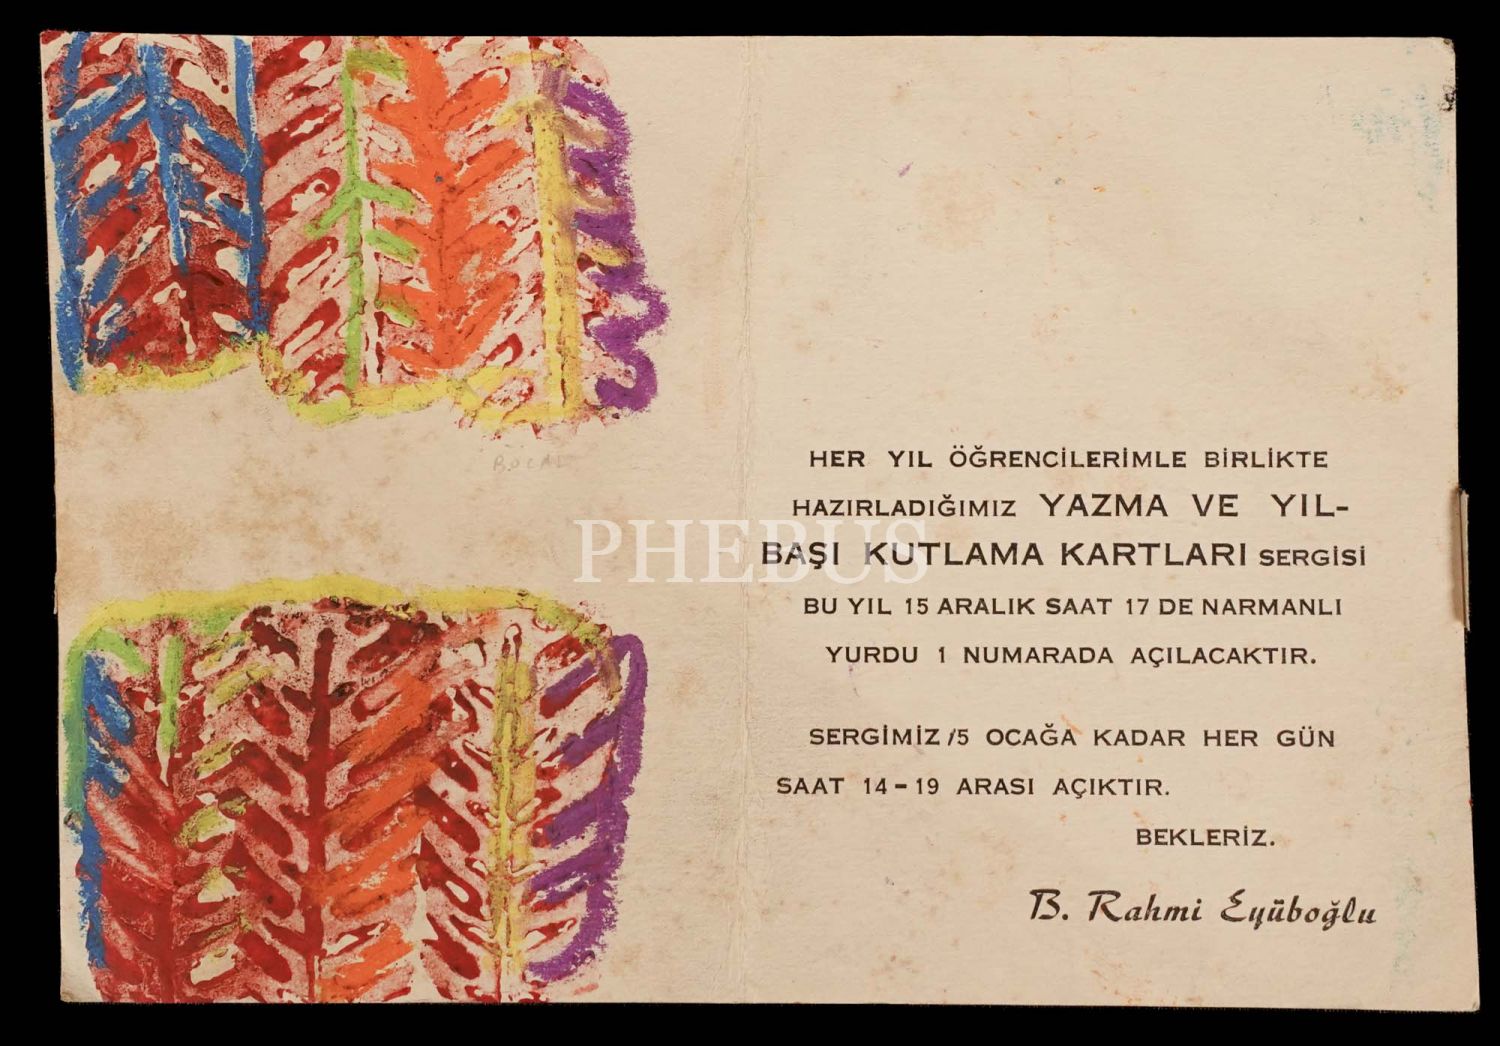 HER YIL ÖĞRENCİLERİMLE BİRLİKTE
HAZIRLADIĞIMIZ YAZMA VE YIL-
BAŞI KUTLAMA KARTLARI SERGİSİ
BU YIL 15 ARALIK SAAT 17 DE NARMANLI
YURDU 1 NUMARADA AÇILACAKTIR.
SERGİMİZ 15 OCAĞA KADAR HER GÜN
SAAT 14-19 ARASI AÇIKTIR.
BEKLERİZ.
B. Rahmi Eyüboğlu
PHEBUS